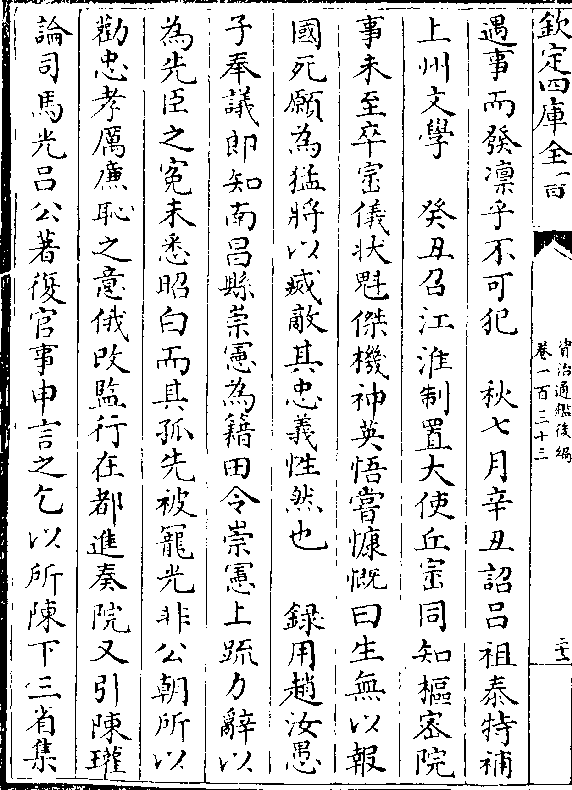 欽定四庫全書
資治通鑑後編
卷一百三十三
遇事而發凛乎不可犯　秋七月辛丑詔呂祖泰特補
上州文學　癸丑召江淮制置大使丘崈同知樞宻院
事未至卒崈儀狀魁傑機神英悟嘗慷慨曰生無以報
國死願為猛將以滅敵其忠義性然也　録用趙汝愚
子奉議郎知南昌縣崇憲為籍田令崇憲上疏力辭以
為先臣之寃未悉昭白而其孤先被寵光非公朝所以
勸忠孝厲亷恥之意俄改監行在都進奏院又引陳瓘
論司馬光呂公著復官事申言之乞以所陳下三省集